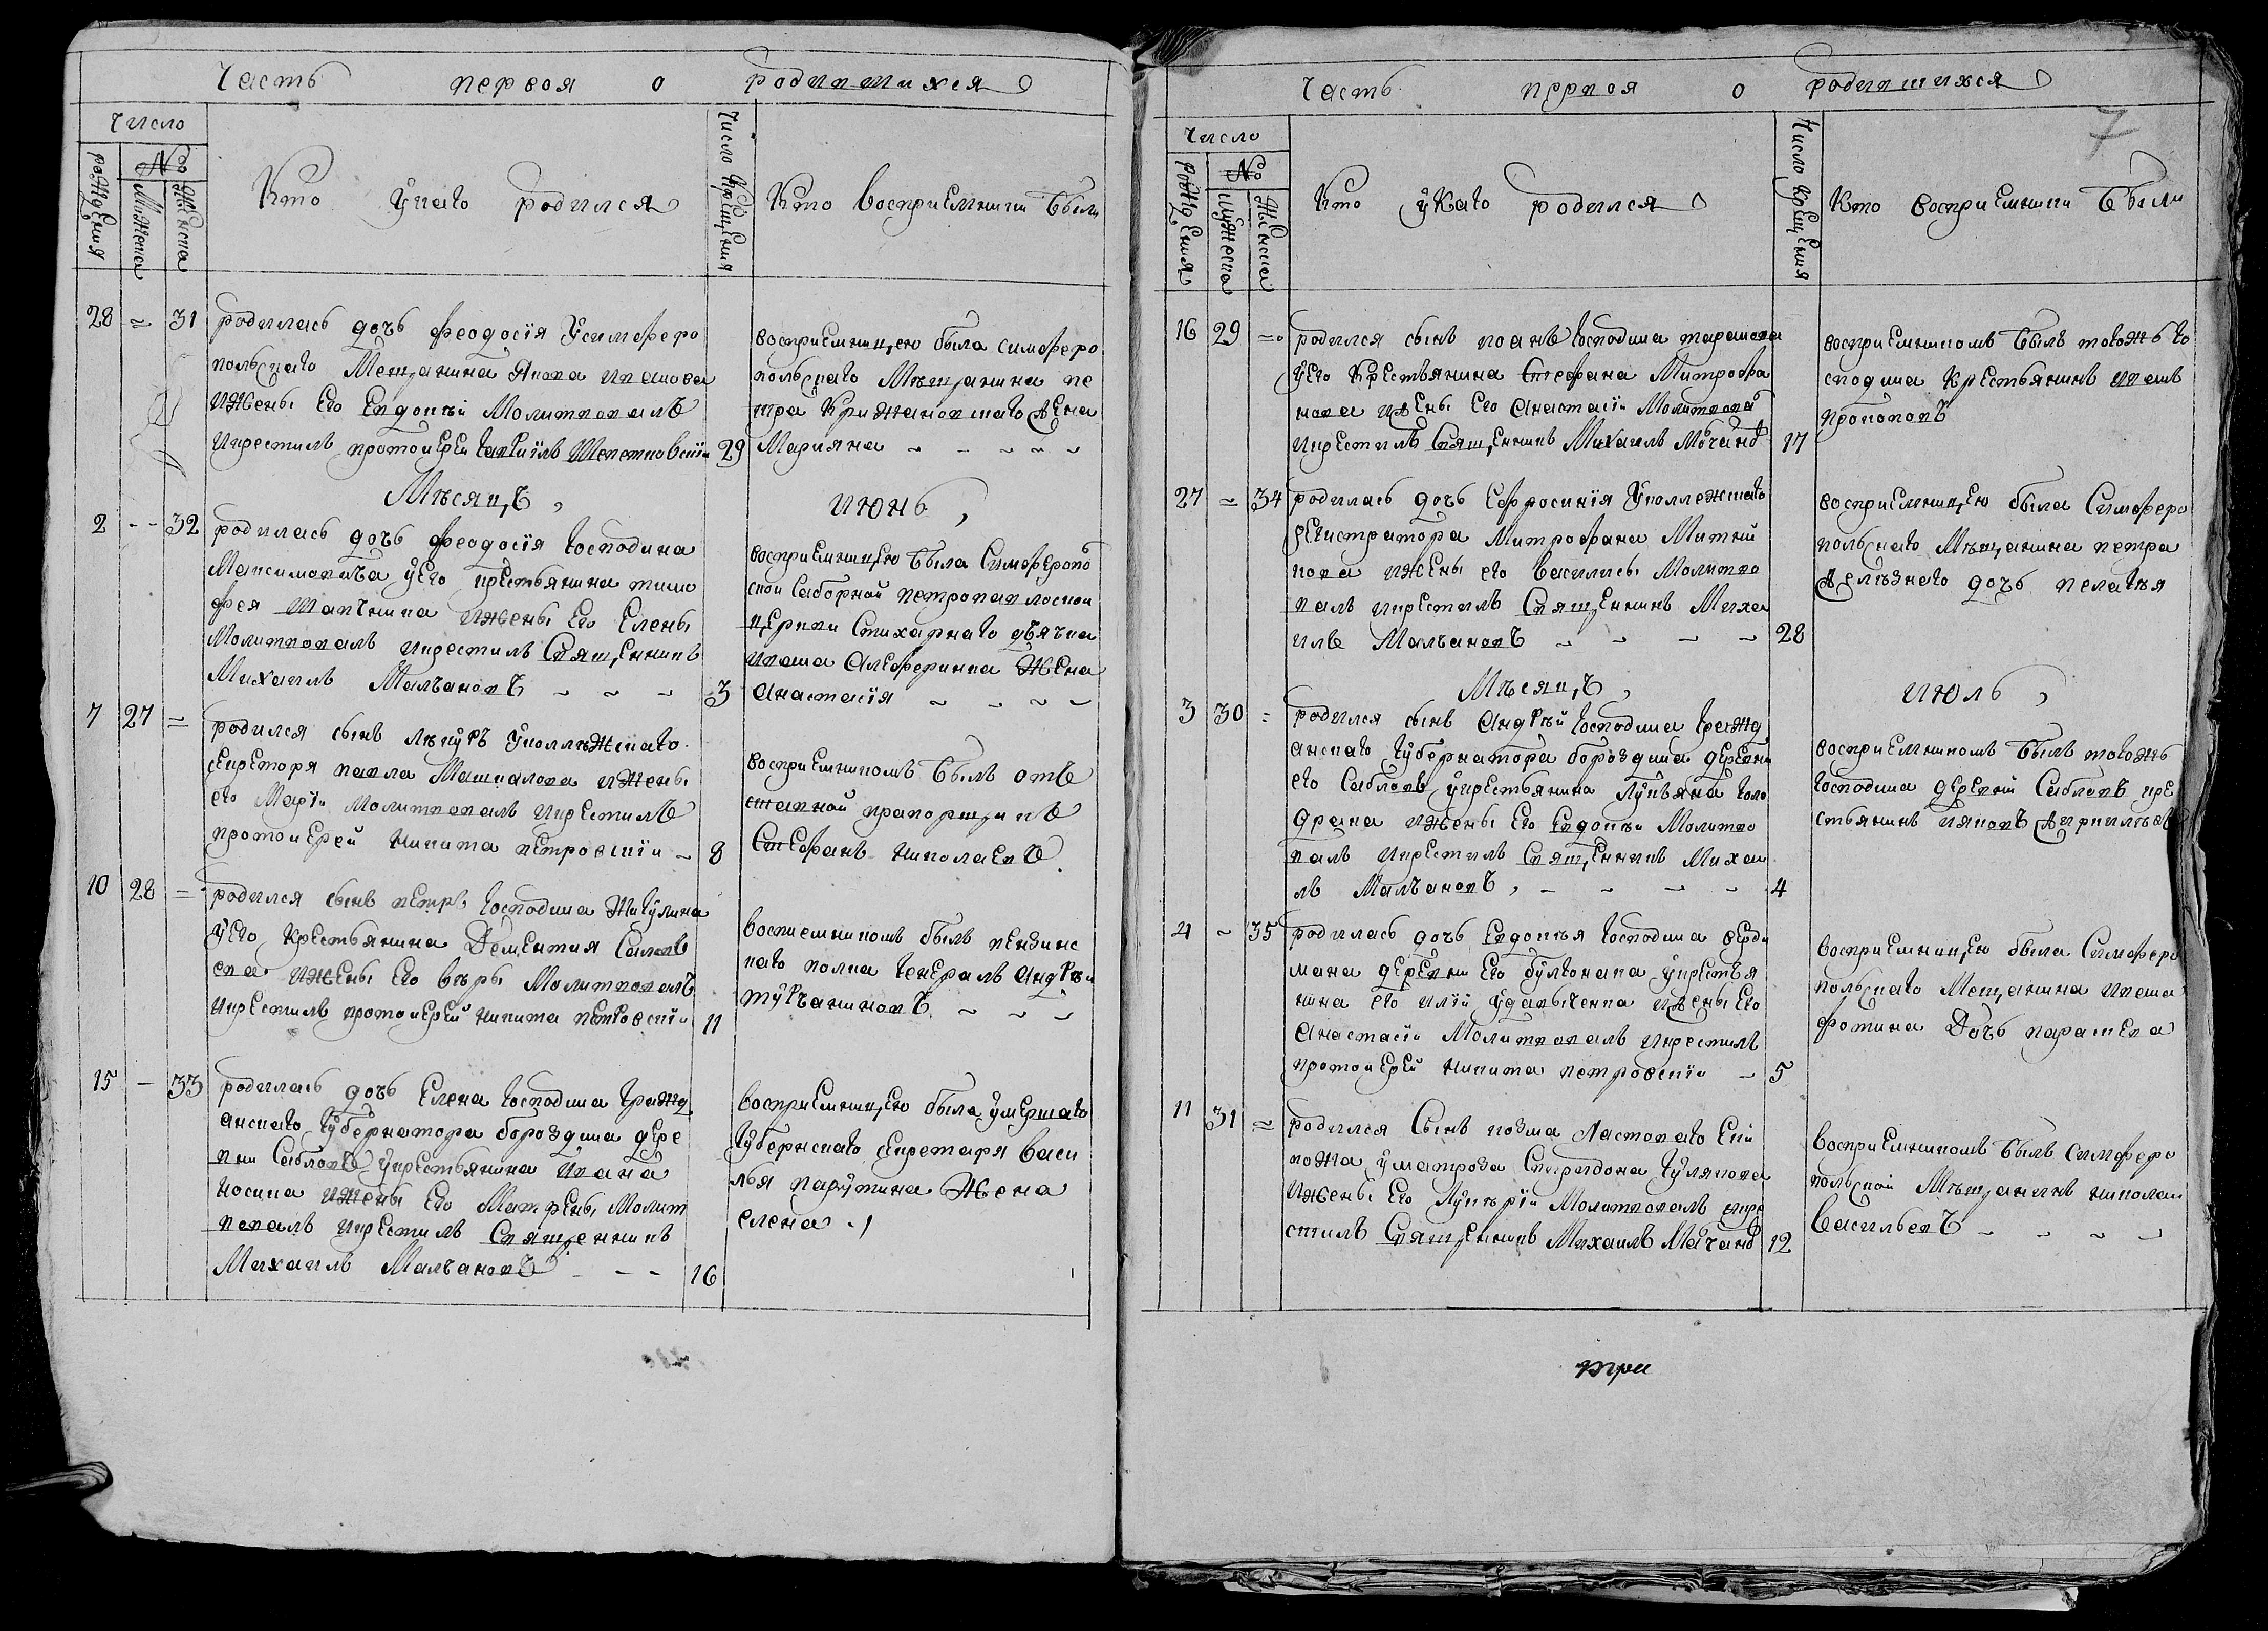 Часть первая о родившихся
Число
рождения
№
Мужеска
Женска
Кто у каго родился
Число крещения
Кто восприемники были
28 31 родилась дочь феодосія У симферо
польскаго Мещанина Якова иванова
и жены Его Евдокѣи Молитвовалъ
и крестилъ протоиерей Гавріилъ 29
восприемницею была симферо
польскаго Мѣщанина пе
тра Крижановскаго жена
Марияна
Мѣсяцъ июнь
2 32 родилась дочь феодосія господина
Максимовича у Его крестьянина тимо
фея Шапкина и жены Его Елены
Молитвовалъ и крестилъ Священникъ
Михаилъ Малчановъ 3
восприемницею была Симферопо
ской Саборной петропавлоской
церкви Стихарнаго дьячка
ивана Алеферинка Жена
Анастасія
7 27 родился сынъ У коллѣжскаго
секреторя павла Машкалова и жены
его Маріи Молитвовалъ и крестилъ
протоиерей никита петровскіи 8
восприемникомъ былъ отъ
ставной прапорщикъ
Стефанъ николаевъ
10 28 родился сынъ петръ господина Жигулина
у Его Крестьянина Дементия
и жены Его вѣры Молитвовалъ
и крестилъ протоиерей никита петровскіи 11
восписемникомъ былъ пензинс
каго полка генералъ андрѣй
турчаниновъ
15 33 родилась дочь Елена господина Гражд
анскаго губернатора бороздина дере
вни Сабловъ у крестьянина ивана
носика и жены Его Матрены Молит
вовалъ и крестилъ Священникъ
Михаилъ Малчановъ 16
восприемницею была умершаго
губернскаго секретаря васи
лья парутина Жена
елена
Часть первая о родившихся
7
Число
рождения
№
Мужеска
Женска
Кто у каго родился
Число крещения
Кто восприемники были
16 29 родился сынъ иоанъ господина таранова
у его Крестьянина Стефана Митрофа
нова и жены его анастасіи Молитвовалъ
и крестилъ Священникъ Михаилъ Мачанов 17
восприемникомъ былъ тогожъ го
сподина Крестьянинъ иванъ
прокоповъ
27 34 родилась дочь Ефросинія У коллежскаго
регистратора Митрофана Миткей
нова и жены его василисы Молитво
валъ и крестилъ Священникъ Михаи
илъ Малчановъ 28
восприемницею была Симферо
польскаго Мѣщанина петра
желѣзнаго дочь пелагѣя
Мѣсяцъ июль
3 30 родился сынъ Андрѣй господина гражд
анскаго губернатора бороздина деревни
его Сабловъ у крестьянина Лукьяна голо
драпа и жены Его Евдокѣи Молитво
валъ и крестилъ Священникъ Михаи
лъ Малчановъ 4
восприемникомъ былъ тогожъ
господина деревни Сабловъ кре
стьянинъ ияковъ
4 35 родилась дочь Евдокѣя господина ферди
мана деревни Его булганака у крестья
нина его иліи Удавыченка и жены Его
Анастасіи Молитвовалъ и крестилъ
протоиерей никита петровскіи 5
восприемницею была Симферо
польскаго Мещанина ивана
фотина Дочь парасковея
11 31 родился Сынъ козма Ластоваго Еки
пажа у матроза Спиридона гулякова
и жены Его Лукѣріи Молитвовалъ и кре
стилъ Священникъ Михаилъ Мачанов 12
восприемникомъ былъ симферо
польской Мѣщанинъ николаи
васильевъ
три